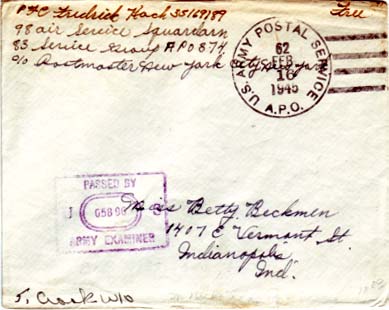 Pfc Fredrick Koch 35169189
Free
98 air Service Squardarn
83 Service Group APO 874
c/o Postmaster New York City New York
U.S. ARMY POSTAL SERVICE
62
FEB
16
1945
A.P.O.
PASSED BY
05896
ARMY EXAMINER
Miss Betty Beckmen
1407 E Vermont St
Indianapolis,
Ind.